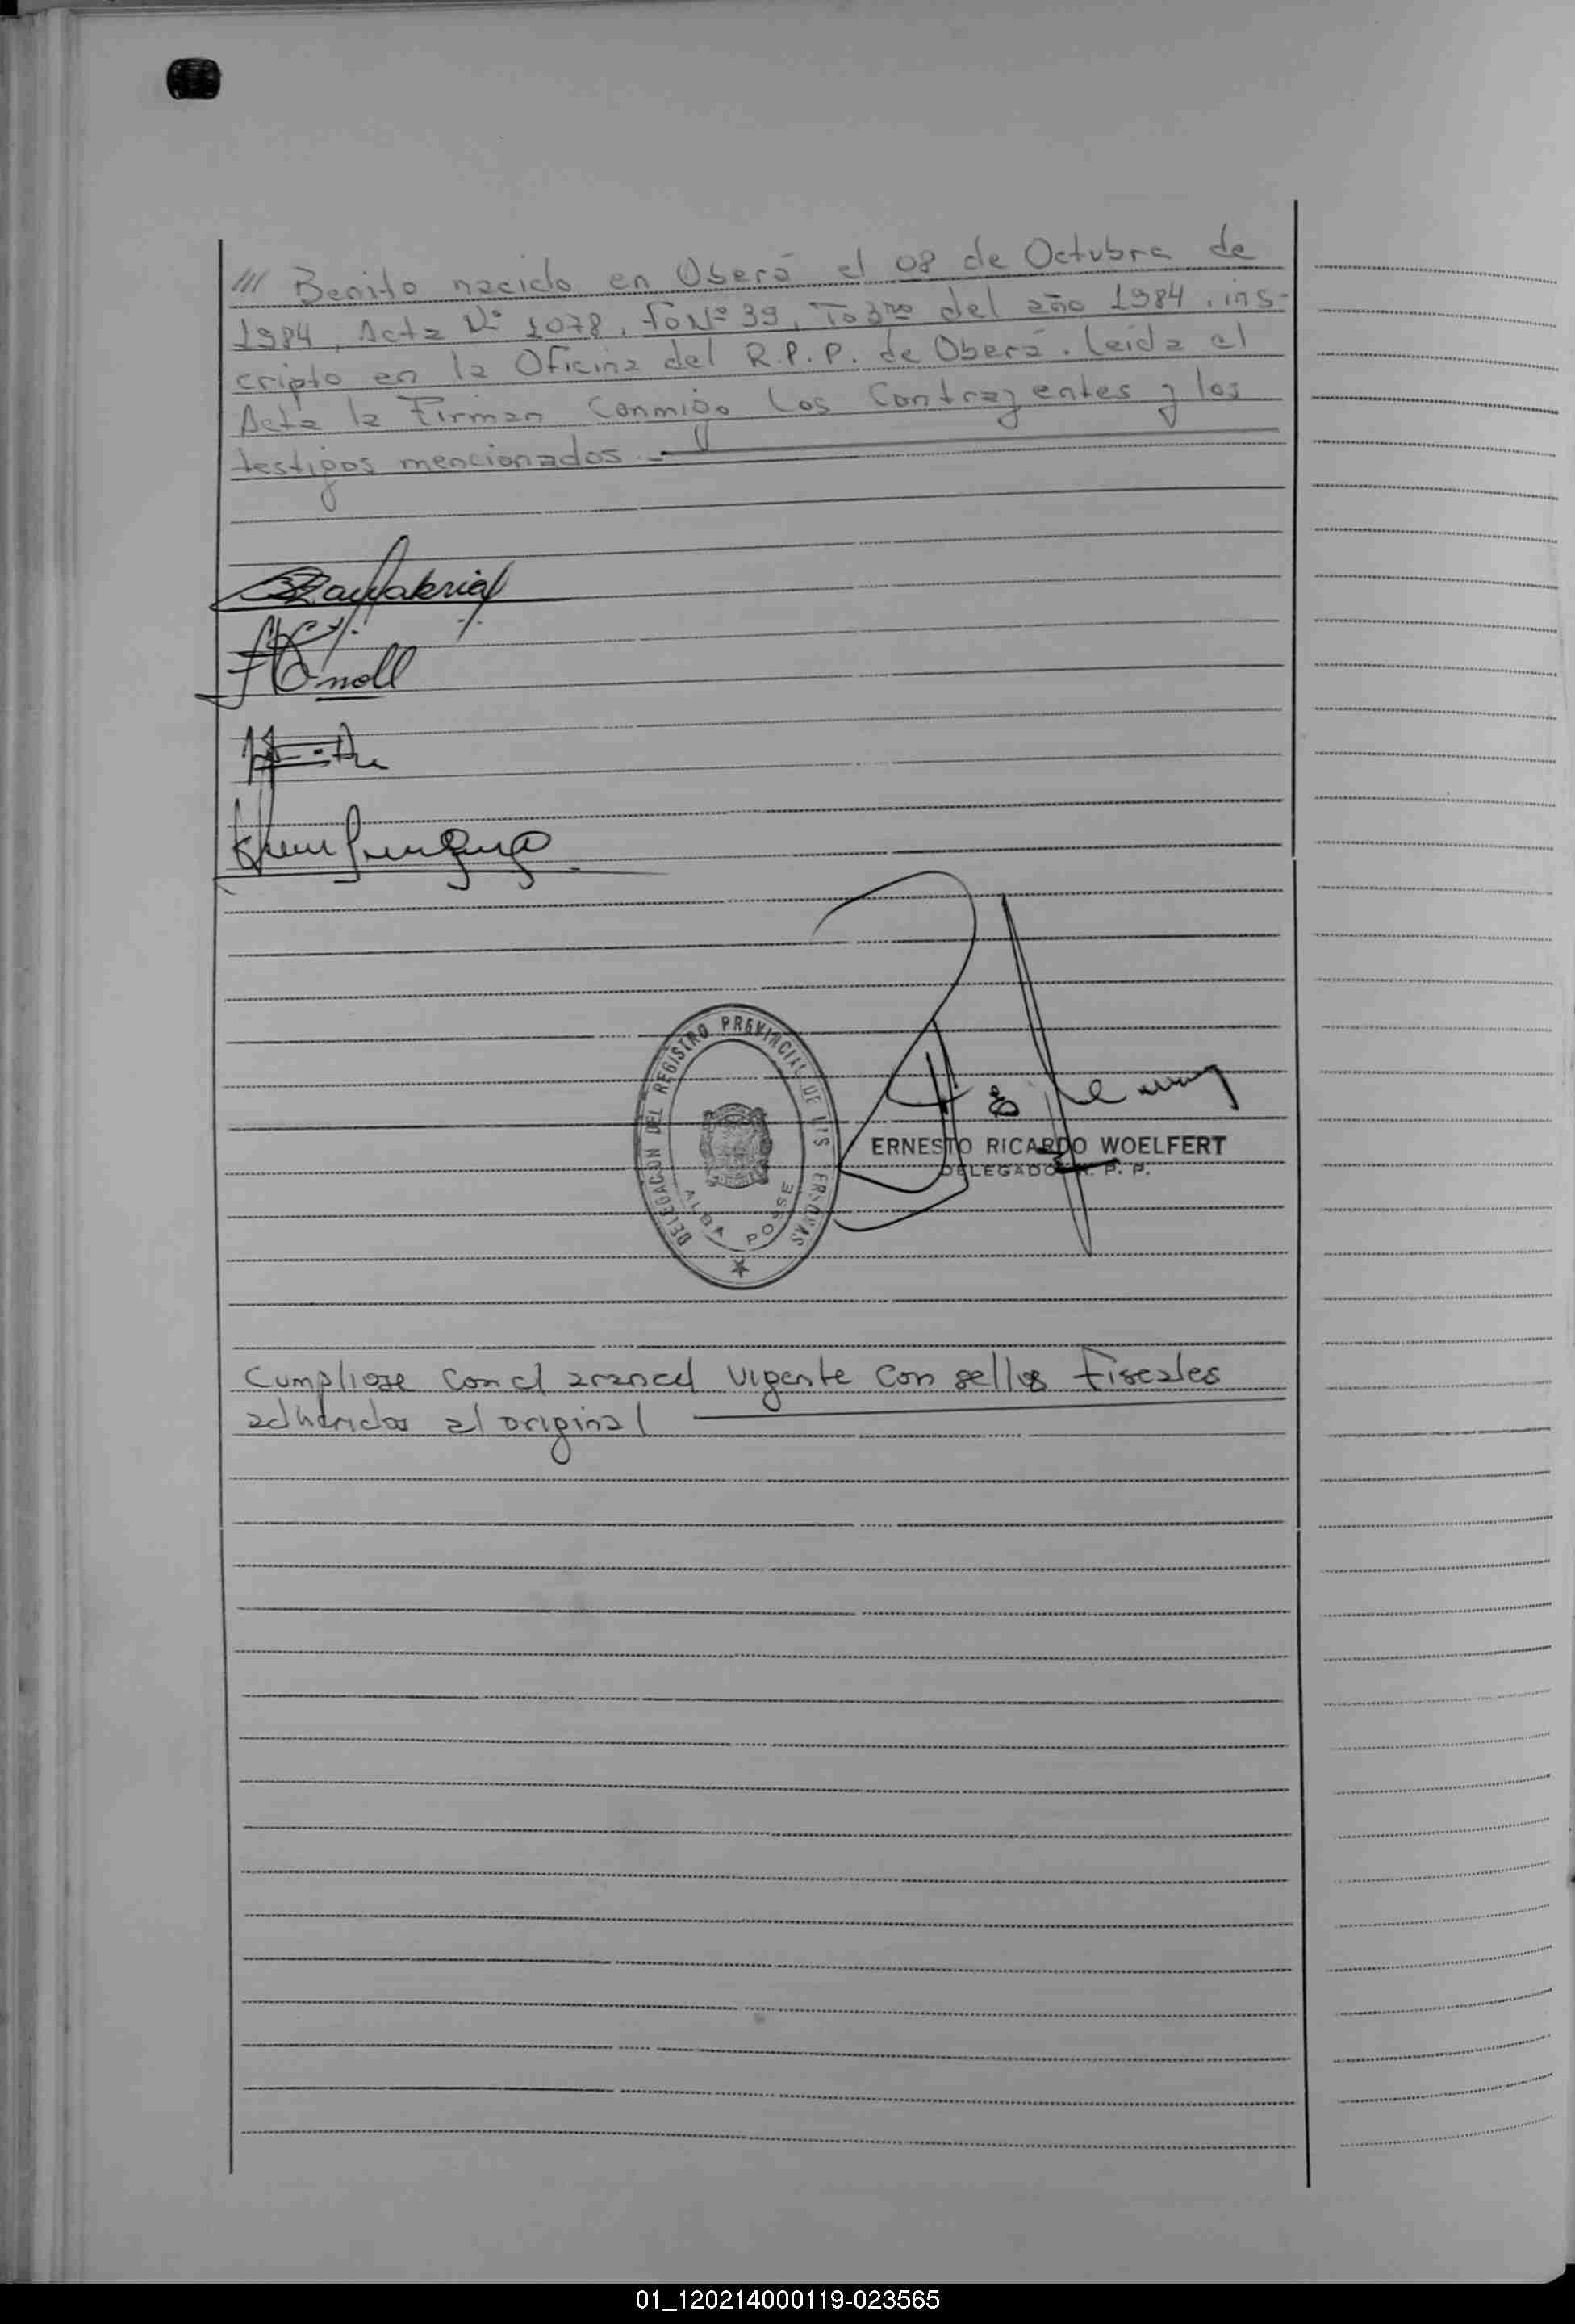 /// Benito nacido en Oberá el 08 de Octubre de
1984, Acta Nº 1078, Fo Nº 39, To 3ro del año 1984, ins-
cripto en la Oficina del R.P.P. de Oberá. Leida el
Acta la Firman Conmigo Los Contrayentes y los
testigos mencionados.-
Knoll
DELEGACION DEL REGISTRO PROVINCIAL DE LAS PERSONAS
ALBA POSSE
ERNESTO RICARDO WOELFERT
DELEGADO R. P. P.
Cumpliose con el arancel vigente con sellos Fiscales
adheridos al original
01_120214000119-023565